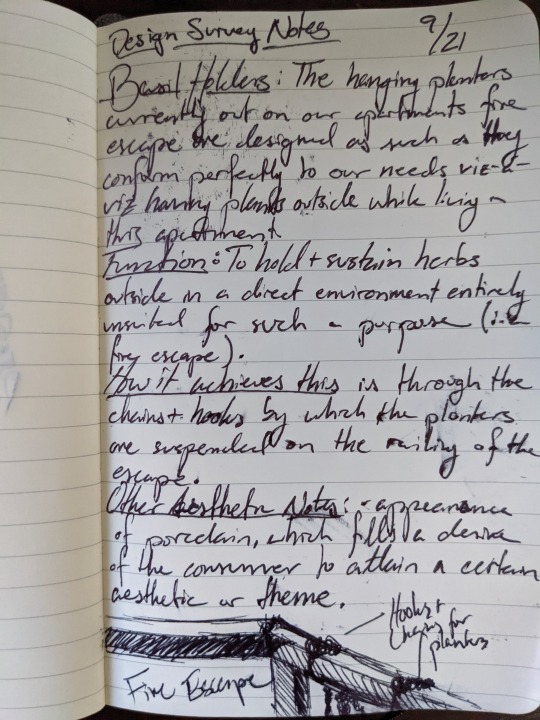 Design Survey Notes 9/21
Basil Holders: The hanging planters
currently out on our apartments fire
escape are designed as such as they
conform perfectly to our needs viz-a-
viz having plants outside while living in
this apartment
Function: To hold + sustain herbs
outside in a direct environment entirely
unsuited for such a purpose (i.e
fire escape).
How it achieves this is through the
chains + hooks by which the planters
are suspended on the railing of the
escape.
Other Aesthetic Notes: - appearance
of porcelain, which fills a desire
of the consumer to attain a certain
aesthetic or theme.
Hooks +
Chains for
planters
Fire Escape